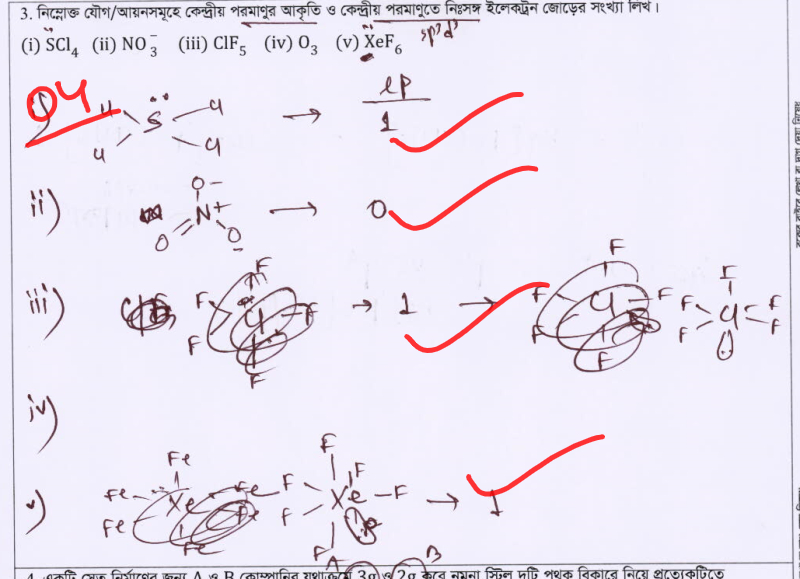 3. নিম্নোক্ত যৌগ/আয়নসমূহে কেন্দ্রীয় পরমাণুর আকৃতি ও কেন্দ্রীয় পরমাণুতে নিঃসঙ্গ ইলেকট্রন জোড়ের সংখ্যা লিখ।
(i) SCl₄ (ii) NO₃⁻ (iii) ClF₅ (iv) O₃ (v) XeF₆ sp³d³
04
i) Cl Cl S Cl Cl → lp
1
ii) O⁻ N⁺ O O⁻ → 0
iii) F F Cl F F F → 1 → F F Cl F F F F Cl F F F
iv)
v) Fe Fe Xe Fe Fe Fe Fe F F F F Xe F F → 1
4. একটি সেতু নির্মাণের জন্য A ও B কোম্পানির যথাক্রমে 3σ ও 2σ করে নমুনা স্টিল দুটি পৃথক বিকারে নিয়ে প্রত্যেকটিতে
A B